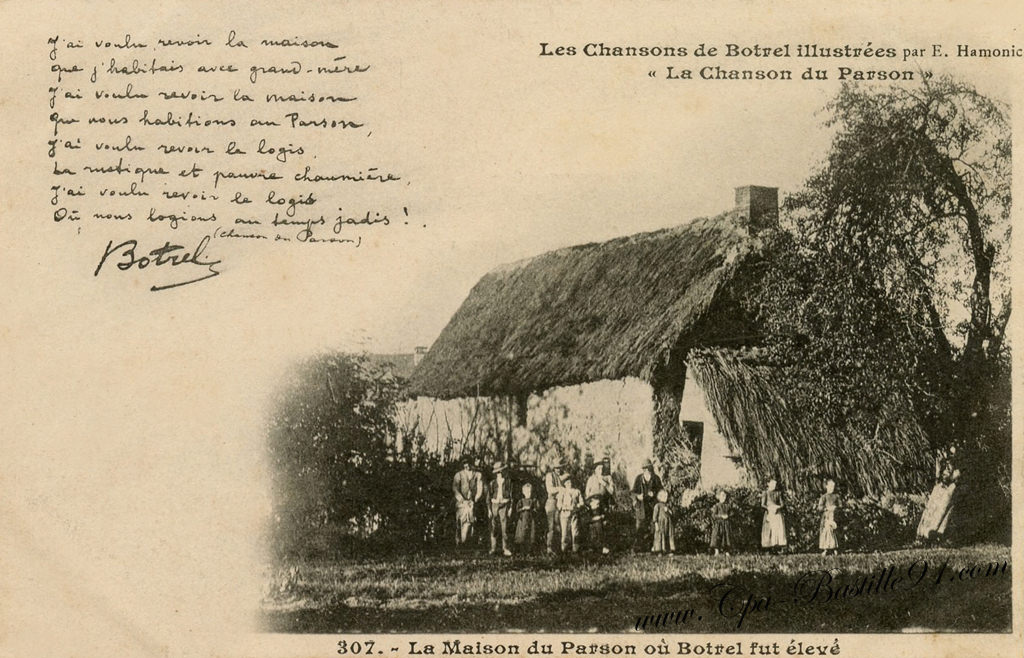 J'ai voulu revoir la maison
que j'habitais avec grand-mère
J'ai voulu revoir la maison
Que nous habitions au Parson,
J'ai voulu revoir le logis,
La rustique et pauvre chaumière,
J'ai voulu revoir le logis
Où nous logions au temps jadis !
(Chanson du Parson)
Botrel
Les Chansons de Botrel illustrées par E. Hamonic
« La Chanson du Parson »
www.Cpa-Bastille91.com
307. - La Maison du Parson où Botrel fut élevé